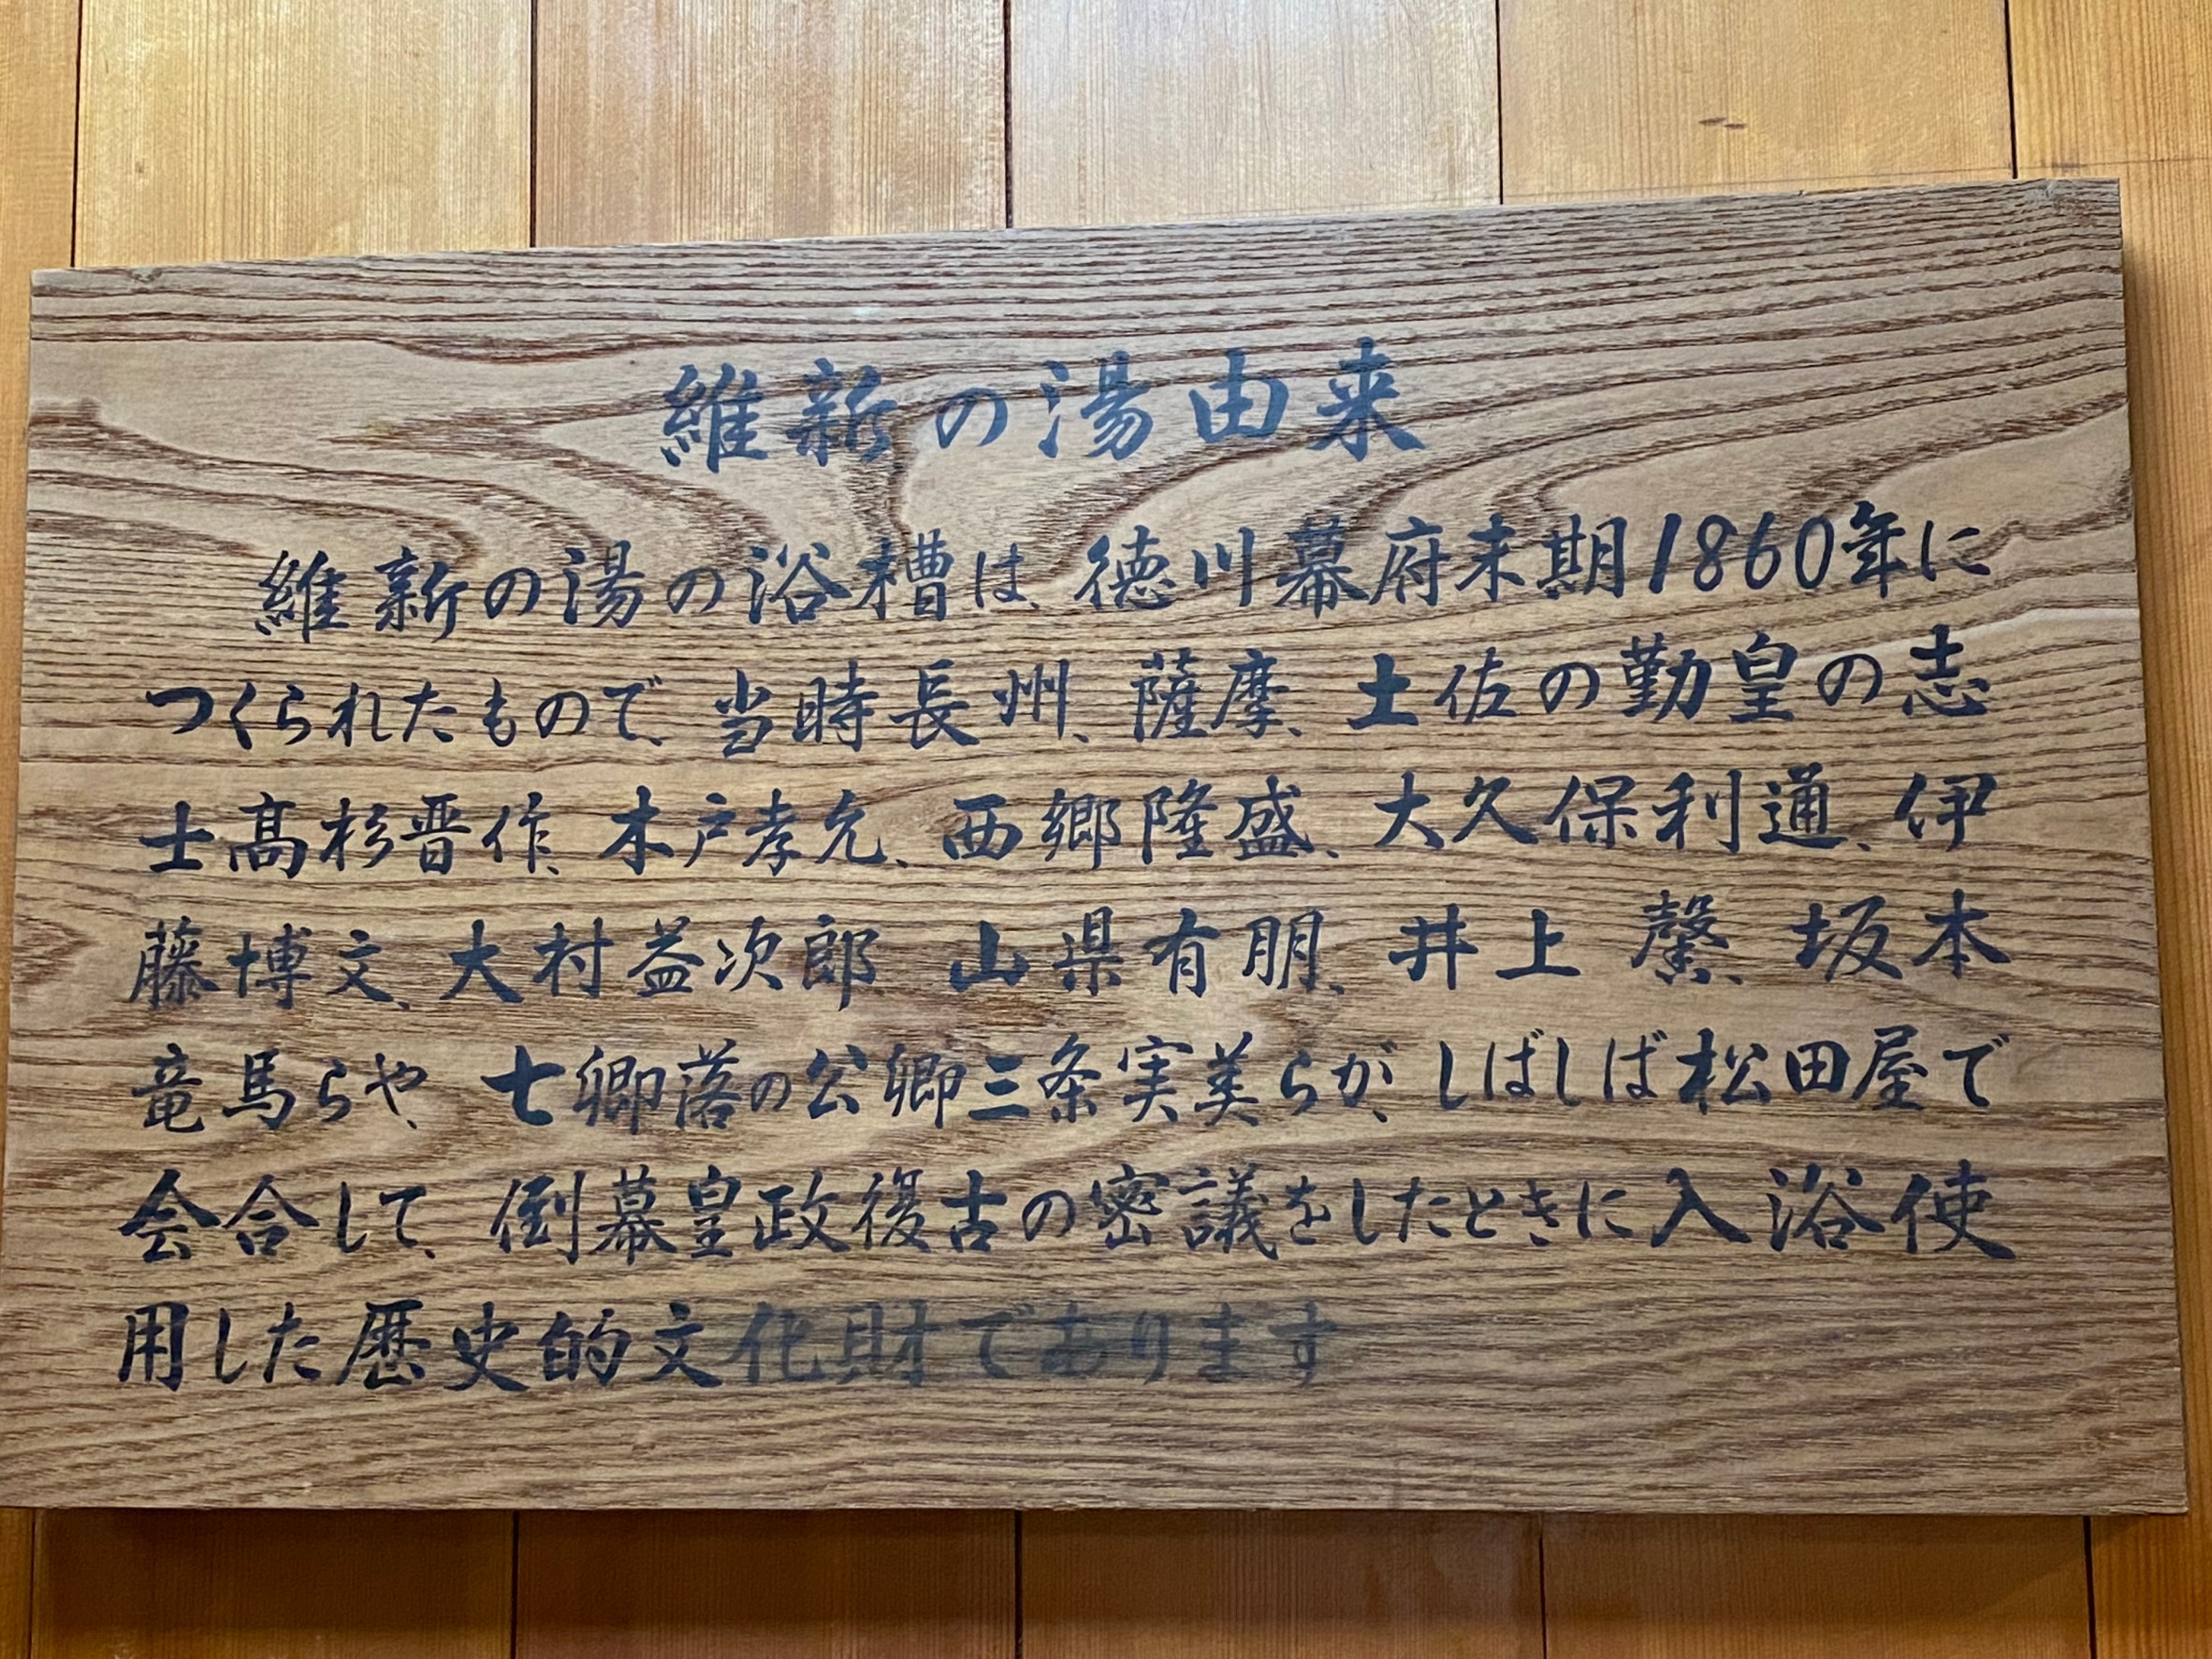 維新の湯由来
維新の湯の浴槽は、徳川幕府末期1860年に
つくられたもので、当時長州、薩摩、土佐の勤皇の志
士髙杉晋作、木戸孝允、西郷隆盛、大久保利通、伊
藤博文、大村益次郎、山県有朋、井上 馨、坂本
竜馬らや、七卿落の公卿三条実美らが、しばしば松田屋で
会合して、倒幕皇政復古の密議をしたときに入浴使
用した歴史的文化財であります